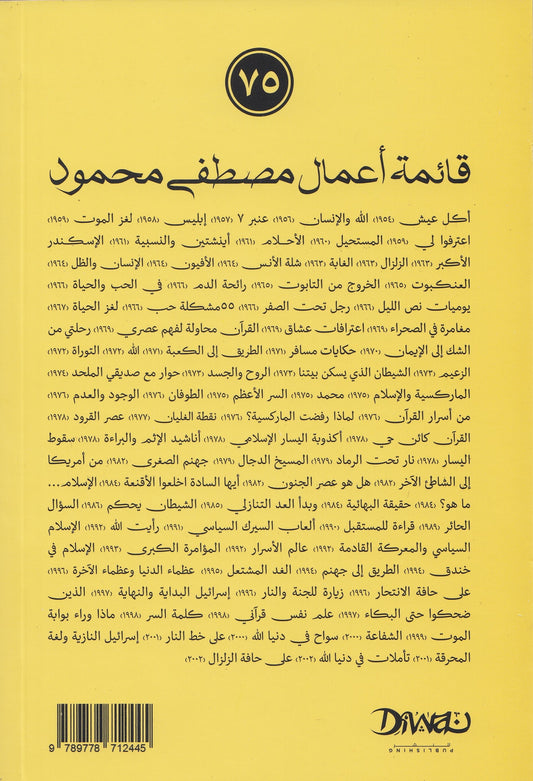 ٧٥
قائمة أعمال مصطفى محمود
أكل عيش (١٩٥٤) الله والإنسان (١٩٥٦) عنبر ٧ (١٩٥٧) إبليس (١٩٥٨) لغز الموت (١٩٥٩)
اعترفوا لي (١٩٥٩) المستحيل (١٩٦٠) الأحلام (١٩٦١) أينشتين والنسبية (١٩٦١) الإسكندر
الأكبر (١٩٦٣) الزلزال (١٩٦٣) الغابة (١٩٦٣) شلة الأنس (١٩٦٤) الأفيون (١٩٦٤) الإنسان والظل (١٩٦٤)
العنكبوت (١٩٦٥) الخروج من التابوت (١٩٦٥) رائحة الدم (١٩٦٦) في الحب والحياة (١٩٦٦)
يوميات نص الليل (١٩٦٦) رجل تحت الصفر (١٩٦٦) ٥٥ مشكلة حب (١٩٦٦) لغز الحياة (١٩٦٧)
مغامرة في الصحراء (١٩٦٩) اعترافات عشاق (١٩٦٩) القرآن محاولة لفهم عصري (١٩٦٩) رحلتي من
الشك إلى الإيمان (١٩٧٠) حكايات مسافر (١٩٧١) الطريق إلى الكعبة (١٩٧١) الله (١٩٧٢) التوراة (١٩٧٢)
الزعيم (١٩٧٣) الشيطان الذي يسكن بيتنا (١٩٧٣) الروح والجسد (١٩٧٣) حوار مع صديقي الملحد (١٩٧٤)
الماركسية والإسلام (١٩٧٥) محمد (١٩٧٥) السر الأعظم (١٩٧٥) الطوفان (١٩٧٦) الوجود والعدم (١٩٧٦)
من أسرار القرآن (١٩٧٦) لماذا رفضت الماركسية؟ (١٩٧٦) نقطة الغليان (١٩٧٧) عصر القرود (١٩٧٨)
القرآن كائن حي (١٩٧٨) أكذوبة اليسار الإسلامي (١٩٧٨) أناشيد الإثم والبراءة (١٩٧٨) سقوط
اليسار (١٩٧٨) نار تحت الرماد (١٩٧٩) المسيخ الدجال (١٩٧٩) جهنم الصغرى (١٩٨٢) من أمريكا
إلى الشاطئ الآخر (١٩٨٢) هل هو عصر الجنون (١٩٨٢) أيها السادة اخلعوا الأقنعة (١٩٨٤) الإسلام...
ما هو؟ (١٩٨٤) حقيقة البهائية (١٩٨٤) وبدأ العد التنازلي (١٩٨٥) الشيطان يحكم (١٩٨٦) السؤال
الحائر (١٩٨٩) قراءة للمستقبل (١٩٩٠) ألعاب السيرك السياسي (١٩٩١) رأيت الله (١٩٩٢) الإسلام
السياسي والمعركة القادمة (١٩٩٢) عالم الأسرار (١٩٩٢) المؤامرة الكبرى (١٩٩٣) الإسلام في
خندق (١٩٩٤) الطريق إلى جهنم (١٩٩٤) الغد المشتعل (١٩٩٥) عظماء الدنيا وعظماء الآخرة (١٩٩٦)
على حافة الانتحار (١٩٩٦) زيارة للجنة والنار (١٩٩٦) إسرائيل البداية والنهاية (١٩٩٧) الذين
ضحكوا حتى البكاء (١٩٩٧) علم نفس قرآني (١٩٩٨) كلمة السر (١٩٩٨) ماذا وراء بوابة
الموت (١٩٩٩) الشفاعة (٢٠٠٠) سواح في دنيا الله (٢٠٠٠) على خط النار (٢٠٠١) إسرائيل النازية ولغة
المحرقة (٢٠٠١) تأملات في دنيا الله (٢٠٠٢) على حافة الزلزال (٢٠٠٢)
9 789778 712445
DIWAN
PUBLISHING
للنشر